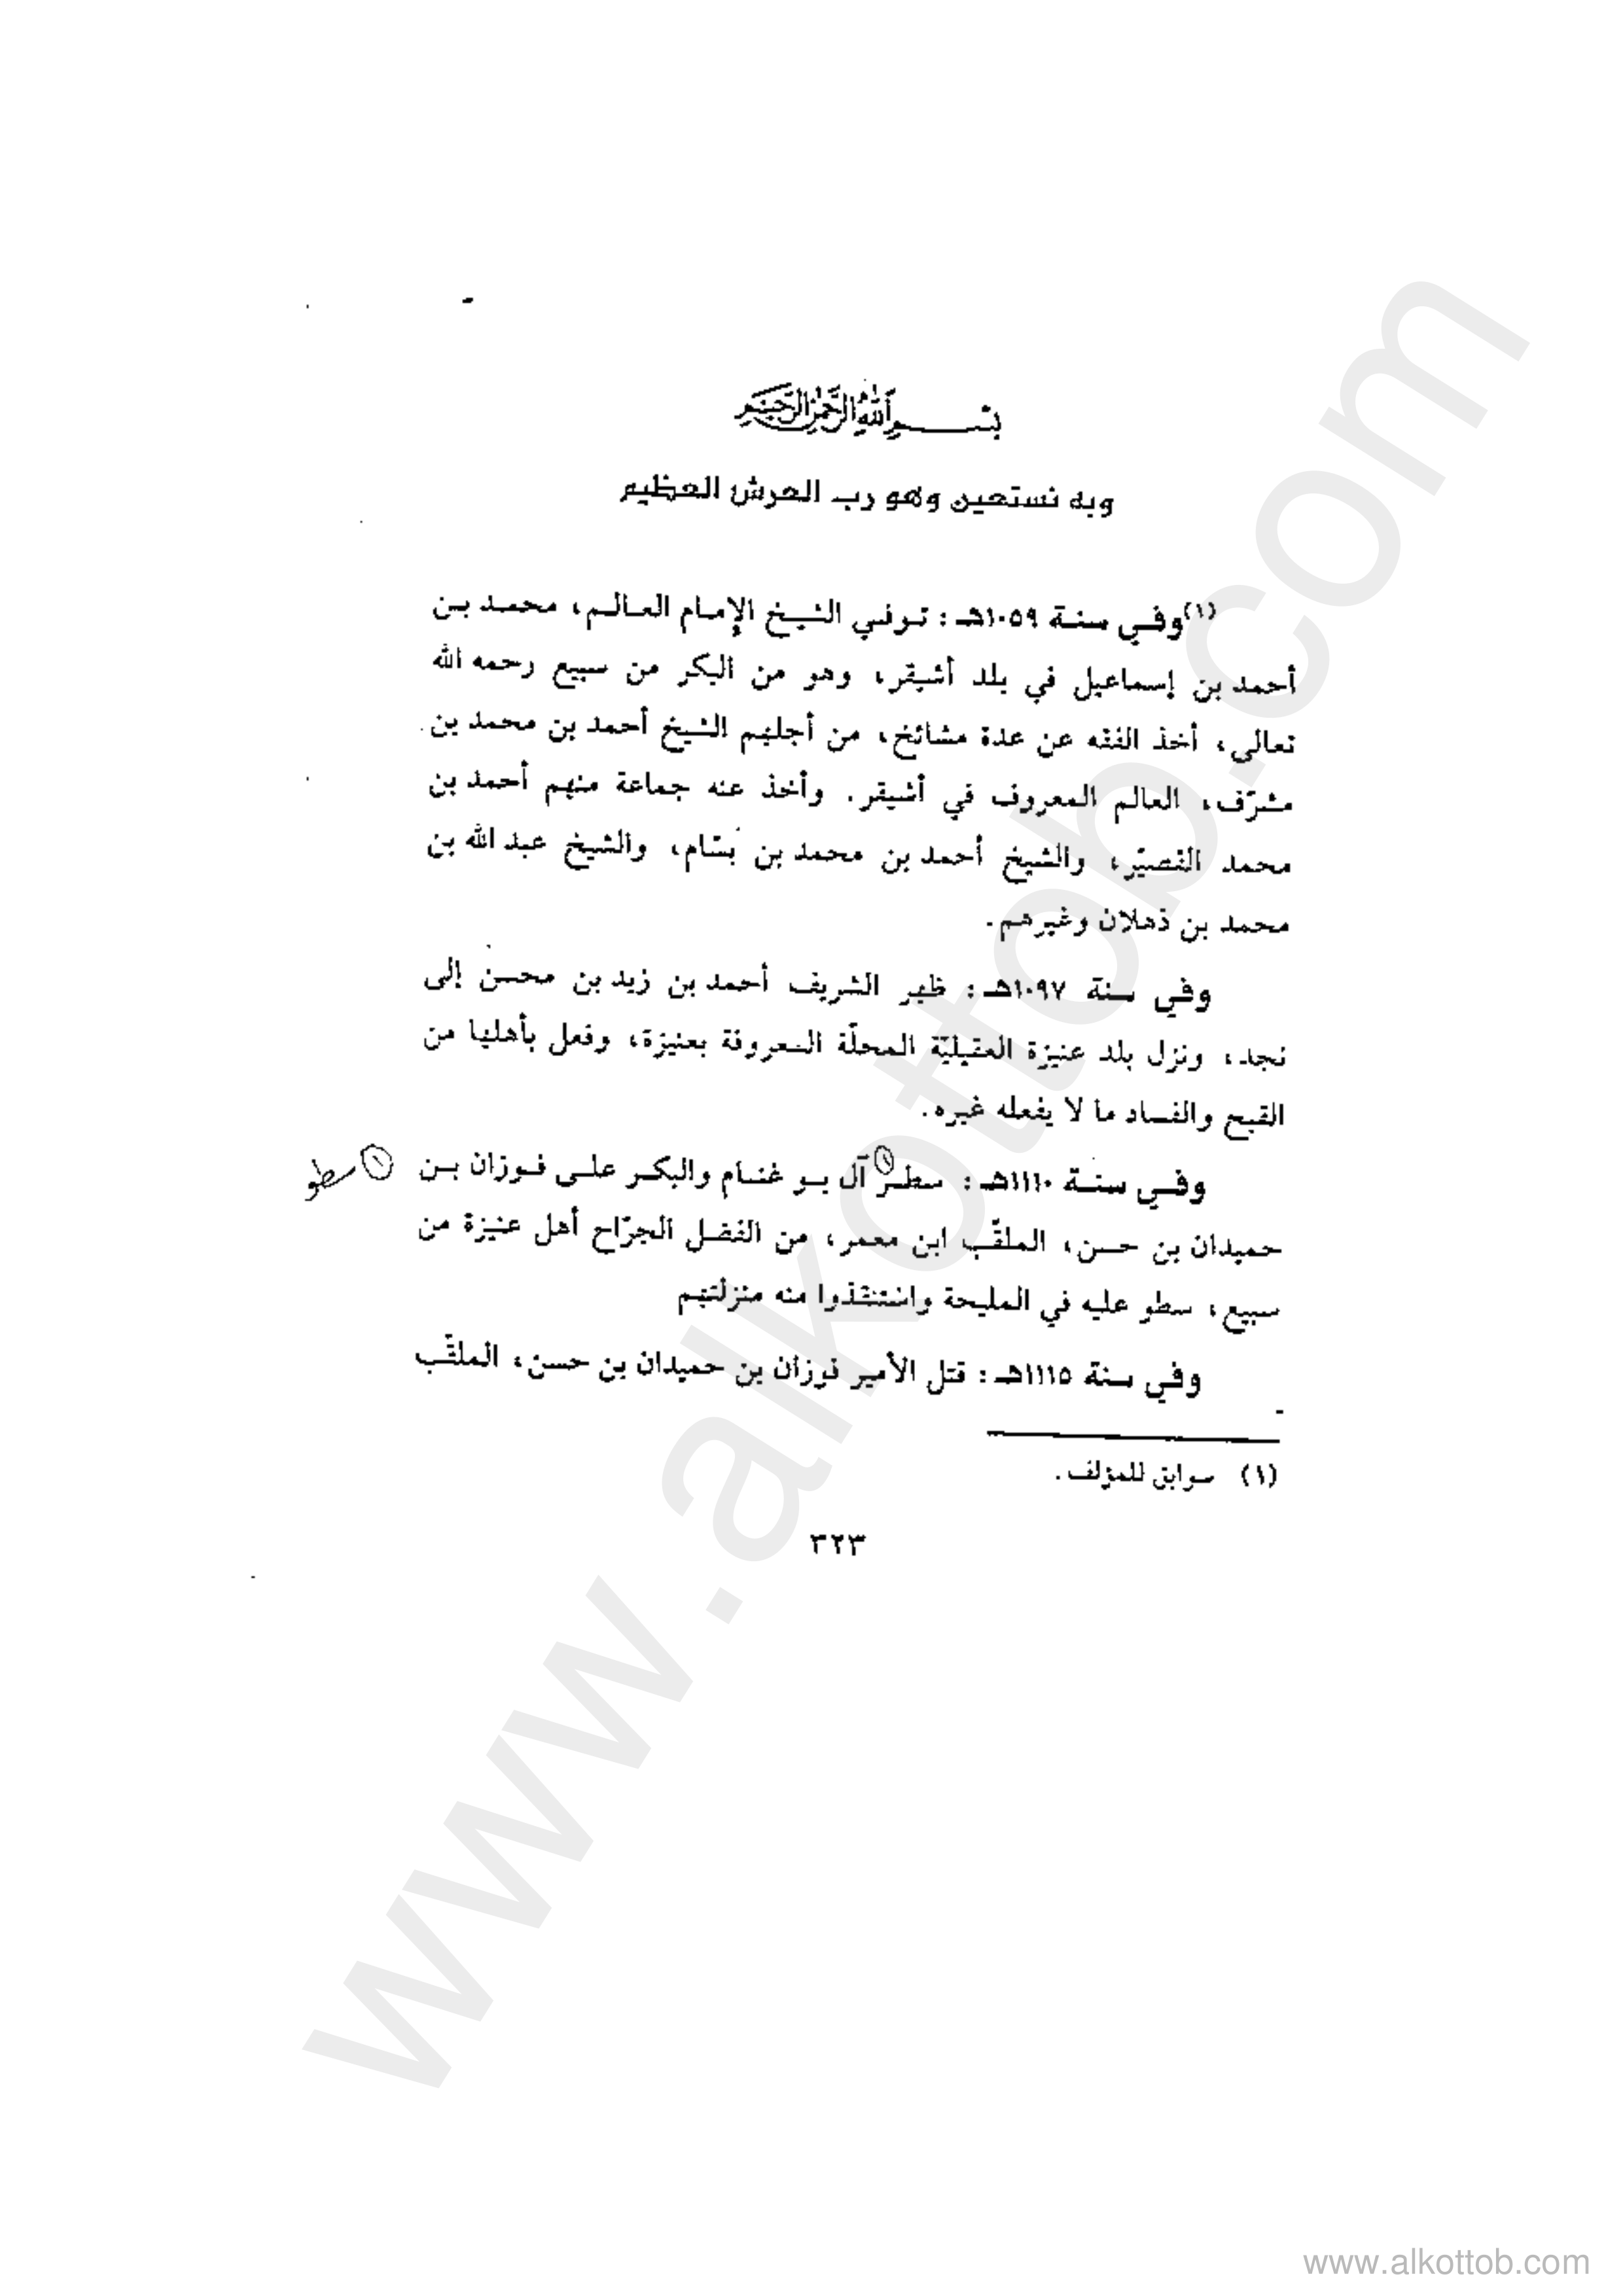 بسم الله الرحمن الرحيم
وبه نستعين وهو رب العرش العظيم
(١)وفي سنة ١٠٥٩هـ: توفي الشيخ الإمام العالم، محمد بن
أحمد بن إسماعيل في بلد أشيقر، وهو من البكر من سبيع رحمه الله
تعالى، أخذ الفقه عن عدة مشائخ، من أجلهم الشيخ أحمد بن محمد بن
مشرّف، العالم المعروف في أشيقر. وأخذ عنه جماعة منهم أحمد بن
محمد القصيّر، والشيخ أحمد بن محمد بن بسّام، والشيخ عبد الله بن
محمد بن ذهلان وغيرهم.
وفي سنة ١٠٩٧هـ: ظهر الشريف أحمد بن زيد بن محسن إلى
نجد، ونزل بلد عنيزة العقيليّة المحلّة المعروفة بعنيزة، وفعل بأهلها من
القبح والفساد ما لا يفعله غيره.
وفي سنة ١١١٠هـ: سطر (١) آل بو غنام والبكر على فوزان بن
(١) سطو
حميدان بن حسن، الملقّب ابن معمر، من الفضل الجرّاح أهل عنيزة من
سبيع، سطو عليه في المليحة واستنقذوا منه منزلتهم
وفي سنة ١١١٥هـ: قتل الأمير فوزان بن حميدان بن حسن، الملقّب
(١) سوابق للمؤلف.
٣٢٣
www.alkottob.com
www.alkottob.com